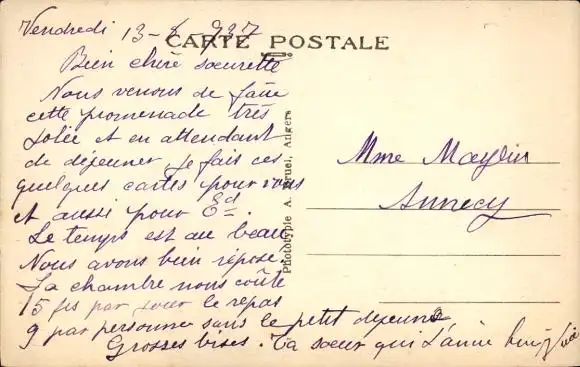 Vendredi 13-8-937
CARTE POSTALE
Bien chère sœurette
Nous venons de faire
cette promenade très
jolie et en attendant
de déjeuner, je fais ces
quelques cartes pour vous
et aussi pour Ed.
Le temps est au beau
Nous avons bien reposé.
La chambre nous coûte
15 frs par jour le repas
9 par personne sans le petit déjeuner
Grosses bises. Ta sœur qui t'aime
Phototypie A. Bruel, Angers
Mme
Annecy